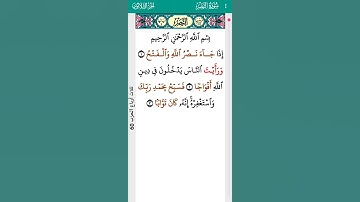 سُورَةُ النَّصۡرِ
الجُزۡءُ الثَّلَاثُونَ
النَّصۡر
بِسۡمِ ٱللَّهِ ٱلرَّحۡمَٰنِ ٱلرَّحِيمِ
إِذَا جَآءَ نَصۡرُ ٱللَّهِ وَٱلۡفَتۡحُ ١
وَرَأَيۡتَ ٱلنَّاسَ يَدۡخُلُونَ فِي دِينِ
ٱللَّهِ أَفۡوَاجٗا ٢ فَسَبِّحۡ بِحَمۡدِ رَبِّكَ
وَٱسۡتَغۡفِرۡهُۚ إِنَّهُۥ كَانَ تَوَّابَۢا ٣
ثلاث أرباع الحزب 60